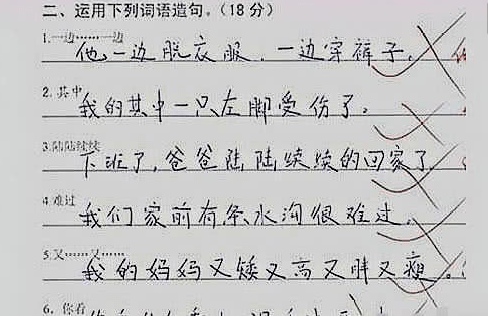 二、运用下列词语造句。(18分)
1.一边……一边
他一边脱衣服,一边穿裤子。
2.其中
我的其中一只左脚受伤了。
3.陆陆续续
下班了,爸爸陆陆续续的回家了
4.难过
我们家前有条水沟很难过。
5.又……又……
我的妈妈又矮又高又胖又瘦。
6.你看